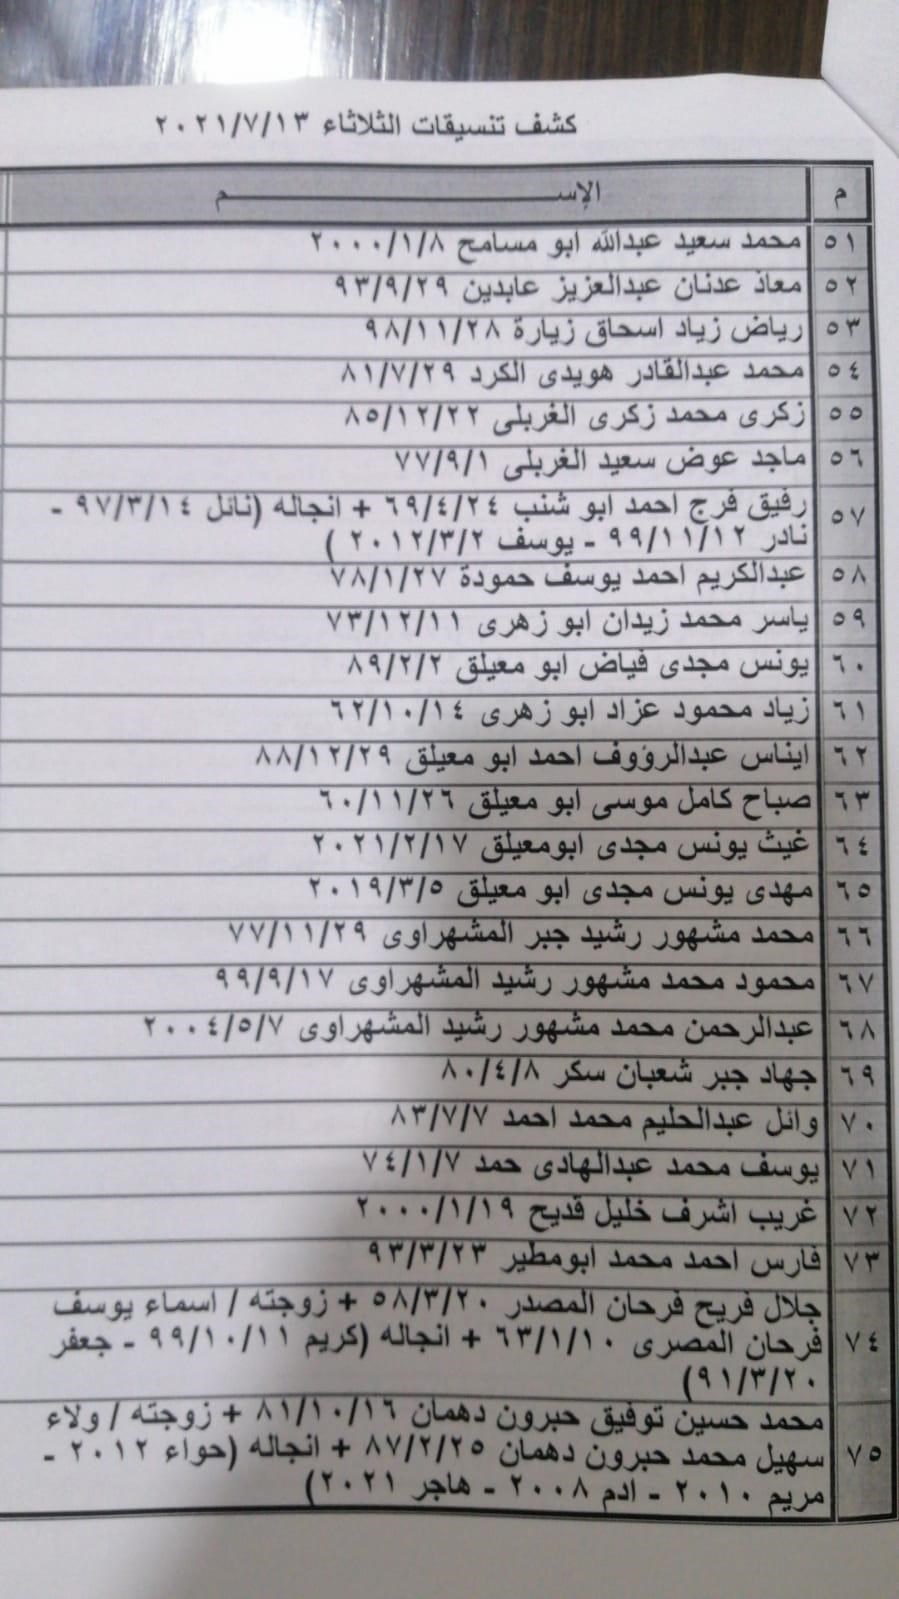 كشف تنسيقات الثلاثاء ٢٠٢١/٧/١٣
م الإســـــــــــــــــــــــــــم
٥١ محمد سعيد عبدالله ابو مسامح ٢٠٠٠/١/٨
٥٢ معاذ عدنان عبدالعزيز عابدين ٩٣/٩/٢٩
٥٣ رياض زياد اسحاق زيارة ٩٨/١١/٢٨
٥٤ محمد عبدالقادر هويدى الكرد ٨١/٧/٢٩
٥٥ زكرى محمد زكرى الغربلى ٨٥/١٢/٢٢
٥٦ ماجد عوض سعيد الغربلى ٧٧/٩/١
٥٧ رفيق فرج احمد ابو شنب ٦٩/٤/٢٤ + انجاله (نائل ٩٧/٣/١٤ -
نادر ٩٩/١١/١٢ - يوسف ٢٠١٢/٣/٢ )
٥٨ عبدالكريم احمد يوسف حمودة ٧٨/١/٢٧
٥٩ ياسر محمد زيدان ابو زهرى ٧٣/١٢/١١
٦٠ يونس مجدى فياض ابو معيلق ٨٩/٢/٢
٦١ زياد محمود عزاد ابو زهرى ٦٢/١٠/١٤
٦٢ ايناس عبدالرؤوف احمد ابو معيلق ٨٨/١٢/٢٩
٦٣ صباح كامل موسى ابو معيلق ٦٠/١١/٢٦
٦٤ غيث يونس مجدى ابومعيلق ٢٠٢١/٢/١٧
٦٥ مهدى يونس مجدى ابو معيلق ٢٠١٩/٣/٥
٦٦ محمد مشهور رشيد جبر المشهراوى ٧٧/١١/٢٩
٦٧ محمود محمد مشهور رشيد المشهراوى ٩٩/٩/١٧
٦٨ عبدالرحمن محمد مشهور رشيد المشهراوى ٢٠٠٤/٥/٧
٦٩ جهاد جبر شعبان سكر ٨٠/٤/٨
٧٠ وائل عبدالحليم محمد احمد ٨٣/٧/٧
٧١ يوسف محمد عبدالهادى حمد ٧٤/١/٧
٧٢ غريب اشرف خليل قديح ٢٠٠٠/١/١٩
٧٣ فارس احمد محمد ابومطير ٩٣/٣/٢٣
٧٤ جلال فريح فرحان المصدر ٥٨/٣/٢٠ + زوجته / اسماء يوسف
فرحان المصرى ٦٣/١/١٠ + انجاله (كريم ٩٩/١٠/١١ - جعفر
٩١/٣/٢٠)
٧٥ محمد حسين توفيق حبرون دهمان ٨١/١٠/١٦ + زوجته / ولاء
سهيل محمد حبرون دهمان ٨٧/٢/٢٥ + انجاله (حواء ٢٠١٢ -
مريم ٢٠١٠ - ادم ٢٠٠٨ - هاجر ٢٠٢١)